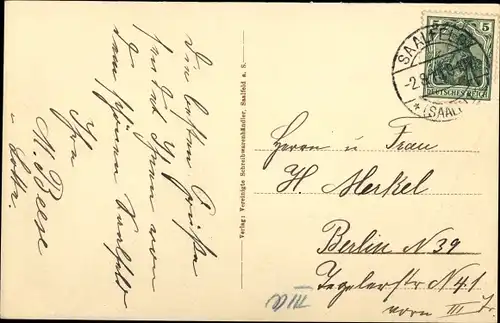 Die besten Grüße
sendet Ihnen von
dem schönen Saalfeld
Ihre
M. Beese
u. Lotte.
Verlag: Vereinigte Schreibwarenhändler, Saalfeld a. S.
5 5
DEUTSCHES REICH
SAALFELD
-2.8.
*(SAALE)
Herrn u. Frau
H. Merkel
Berlin N 39
Tegelerstr N 41
vorn III Tr.